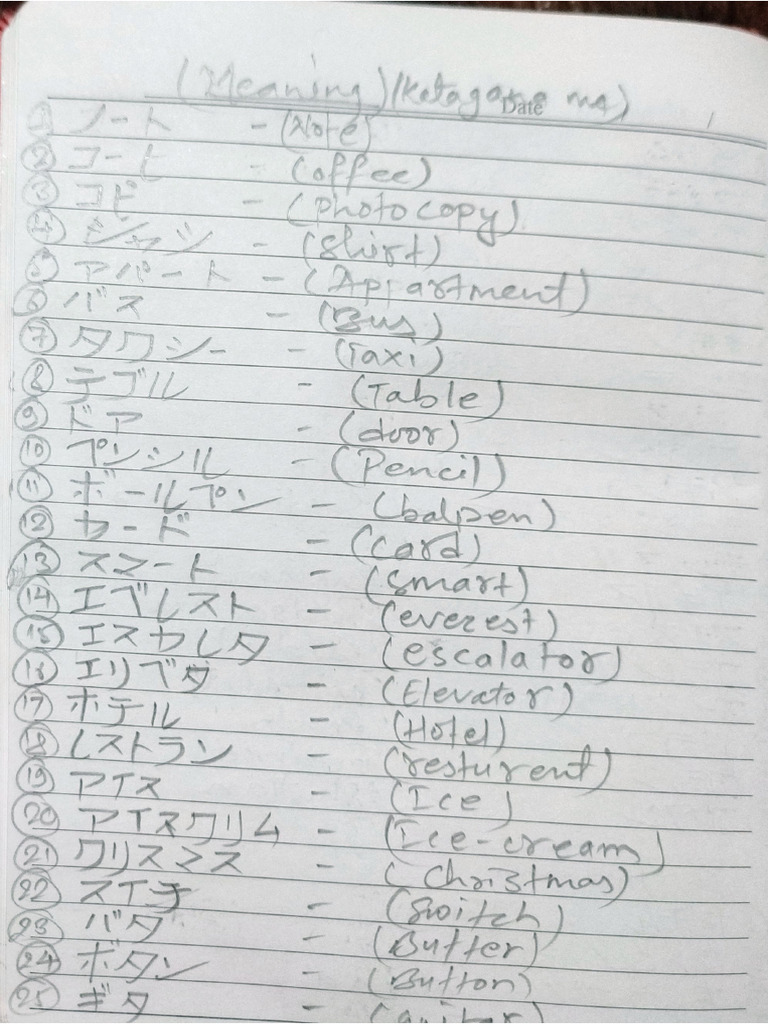 (Meaning) (Katagana ma)
Date
① ノート - (Note)
② コーヒ - (offee)
③ コピ - (photocopy)
④ シャツ - (Shirt)
⑤ アパート - (Appartment)
⑥ バス - (Bus)
⑦ タクシー - (Taxi)
⑧ テブル - (Table)
⑨ ドア - (door)
⑩ ペンシル - (Pencil)
⑪ ボールペン - (balpen)
⑫ カード - (card)
⑬ スマート - (smart)
⑭ エベレスト - (everest)
⑮ エスカレタ - (escalator)
⑯ エリベタ - (Elevator)
⑰ ホテル - (Hotel)
⑱ レストラン - (resturent)
⑲ アイス - (Ice)
⑳ アイスクリム - (Ice-cream)
㉑ クリスマス - (Christmas)
㉒ スイチ - (Switch)
㉓ バタ - (Butter)
㉔ ボタン - (Button)
㉕ ギタ - (guitar)